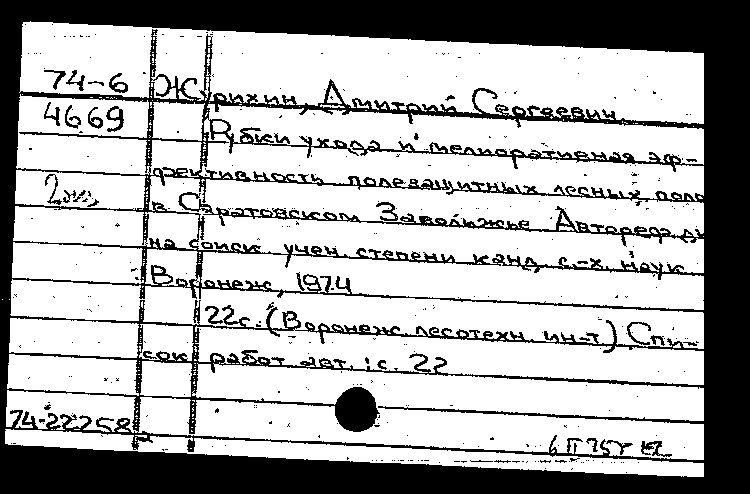 74-6 Журихин, Дмитрий Сергеевич.
4669 Рубки ухода и мелиоративная эф-
фективность полезащитных лесных поло
2 экз. в Саратовском Заволжье Автореф. ди
на соиск. учен. степени канд. с.-х. наук
Воронеж, 1974
22с. (Воронеж. лесотехн. ин-т) Спи-
сок работ авт.: с. 22
74-22258